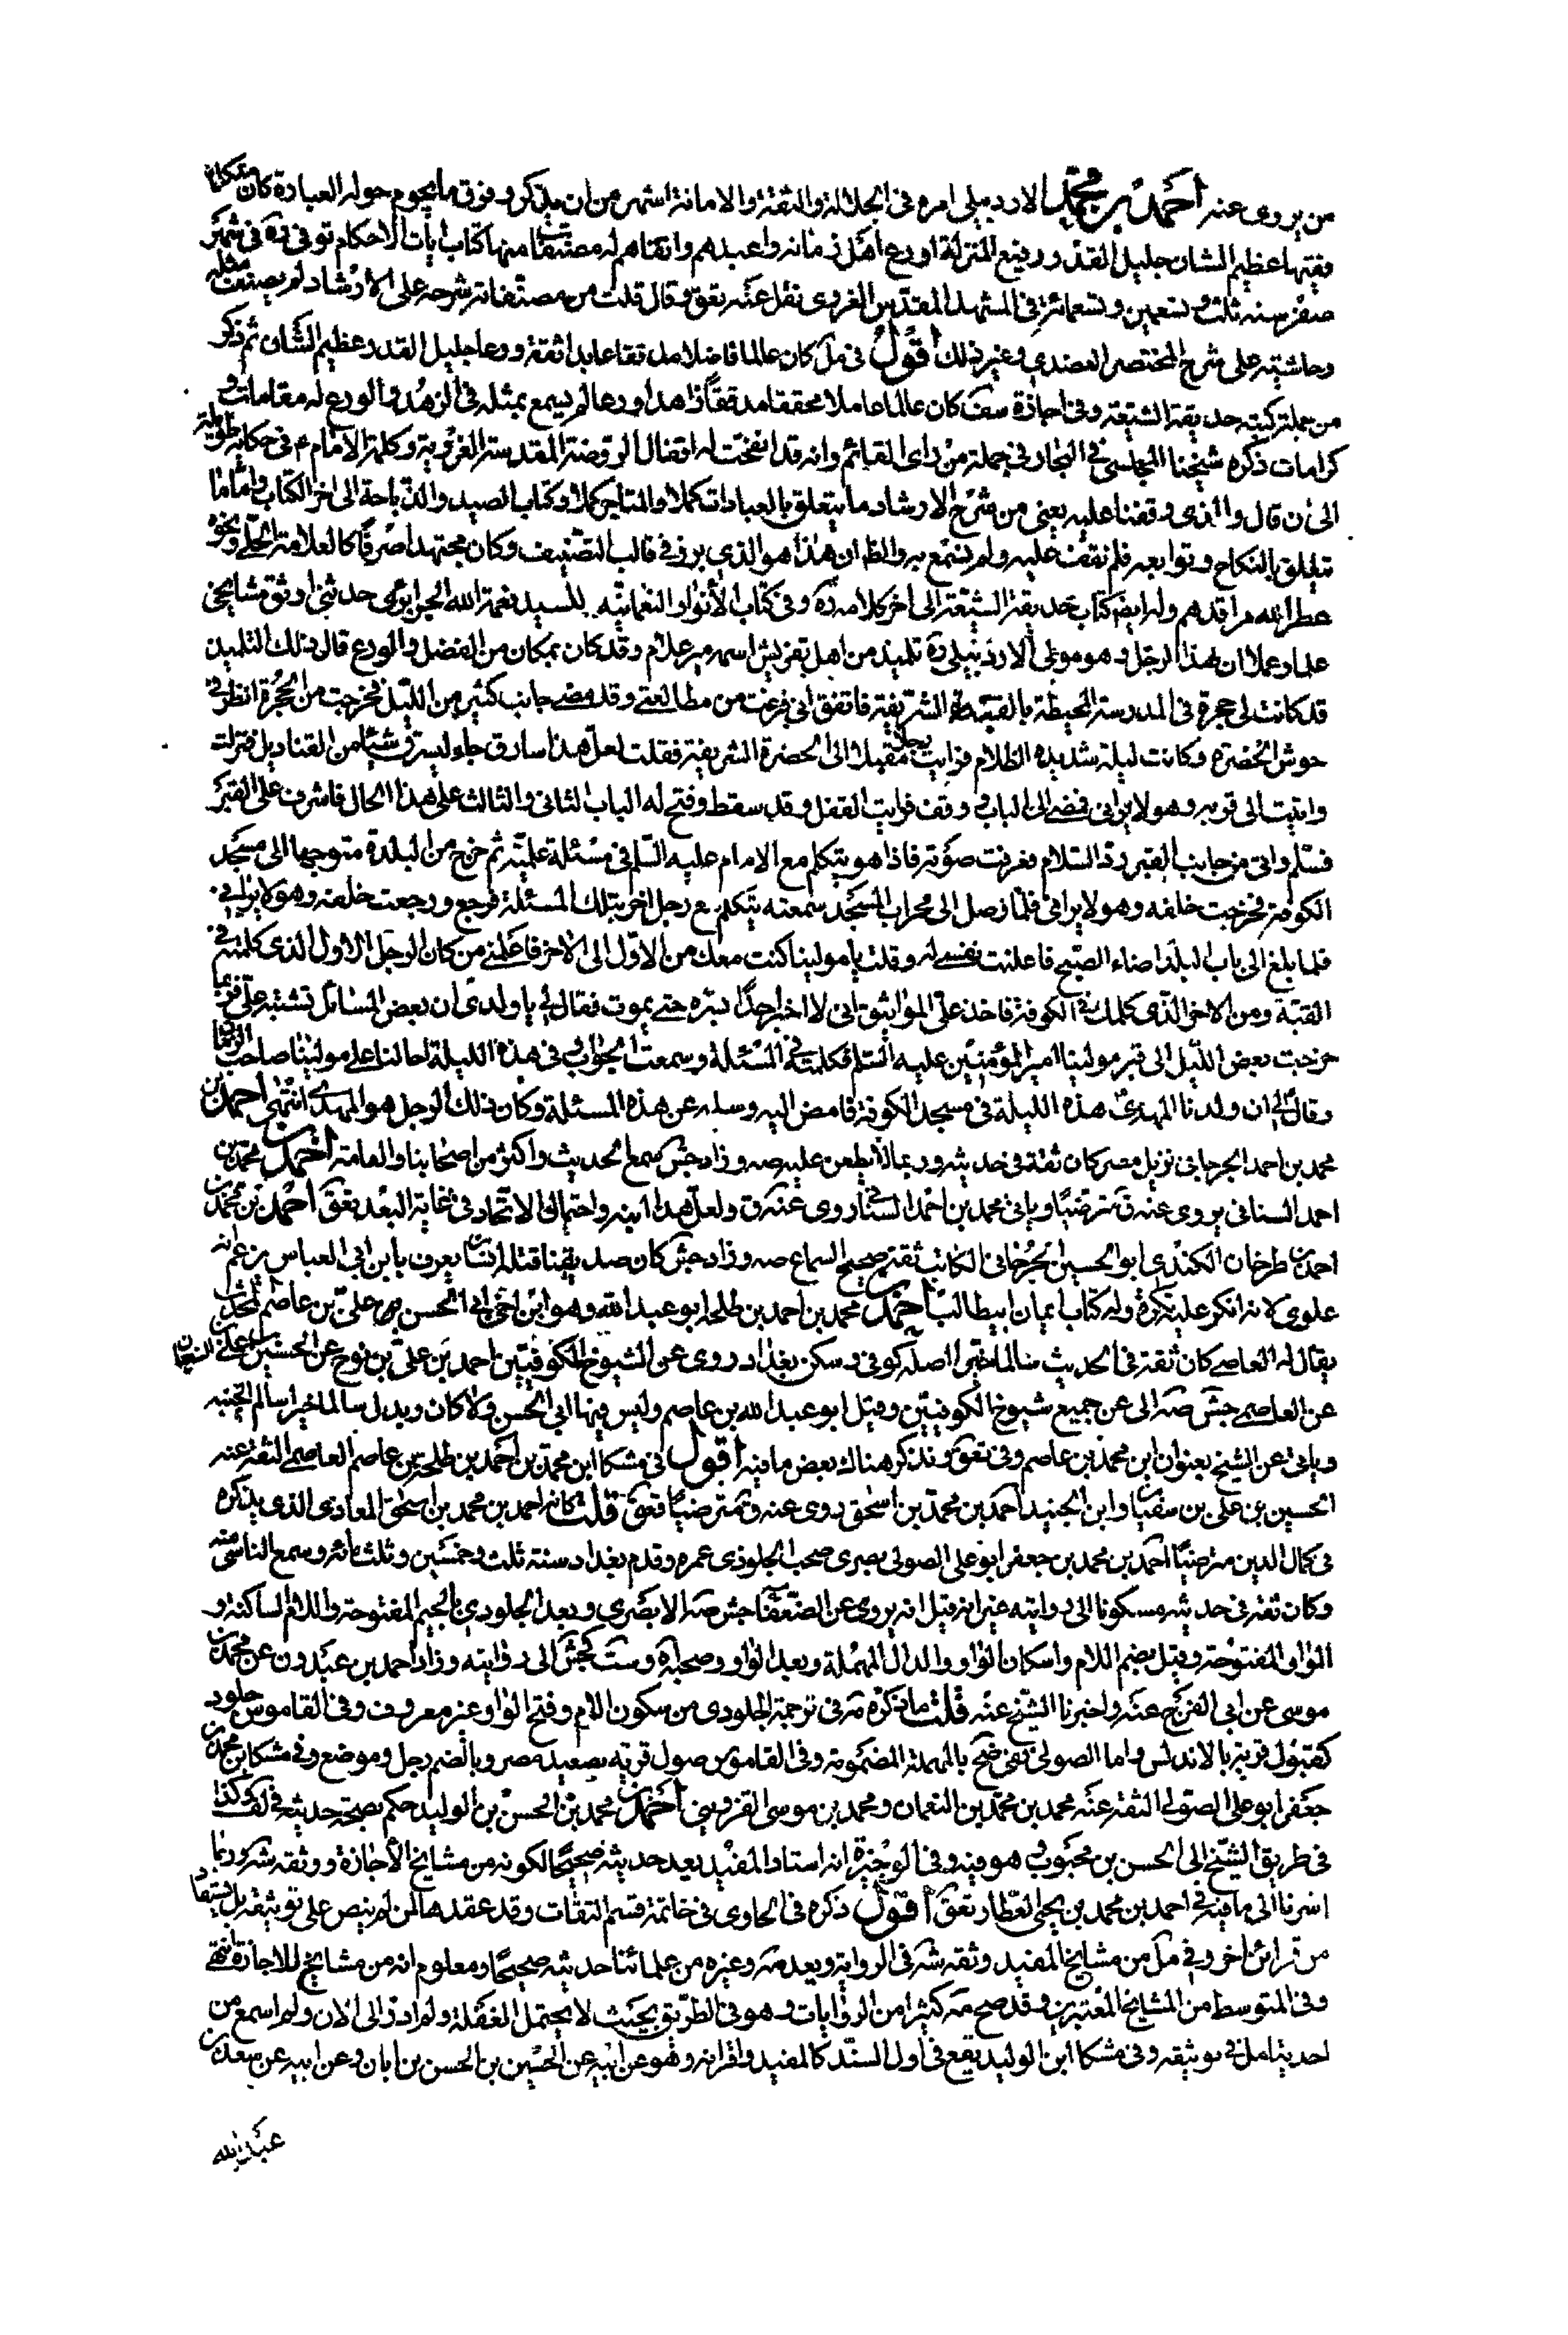 من يروى عنه احمد بن محمد الاردبيلى امره فى الجلالة والثقة والامانة اشهر من ان يذكر وفوق ما يحوم حوله العبادة كان متكلما
فقيها عظيم الشان جليل القدر رفيع المنزلة اورع اهل زمانه واعبدهم واتقاهم له مصنفات منها كتاب ايات الاحكام توفى ره فى شهر
صفر سنه ثلث وتسعين وتسعمائة فى المشهد المقدس الغروى نقل عنه تعق وقال قلت من مصنفاته شرحه على الارشاد لم يصنف مثله
وحاشيته على شرح المختصر العضدي وغير ذلك اقول فى مل كان عالما فاضلا مدققا عابدا ثقة ورعا جليل القدر عظيم الشان ثم ذكر
من جملة كتبه حديقة الشيعة وفى اجازة سف كان عالما عاملا محققا مدققا زاهدا ورعا لم يسمع بمثله فى الزهد والورع له مقامات و
كرامات ذكره شيخنا المجلسى فى البحار فى جملة من راى القائم وانه قد انفتحت له اقفال الروضة المقدسة الغروية وكلمة الامام ع فى حكاية طويلة
الى ان قال والذى وقفنا عليه يعنى من شرح الارشاد ما يتعلق بالعبادات كملا والمتاجر كملا وكتاب الصيد والذباحة الى اخر الكتاب واما ما
تعلق بالنكاح وتوابعه فلم نقف عليه ولم نسمع به والظ ان هذا هو الذي برز فى قالب التصنيف وكان مجتهدا صرفا كالعلامة الحلى ونحوه
عطر الله مراقدهم وله ايضا كتاب حديقة الشيعة الى اخر كلامه ره وفى كتاب الأنوار النعمانيه للسيد نعمة الله الجزايرى حدثنى اوثق مشايخى
علما وعملا ان لهذا الرجل وهو مولى الاردبيلى ره تلميذ من اهل تفريش اسمه مير علام وقد كان بمكان من الفضل والورع قال ذلك التلميذ
قد كانت لى حجرة فى المدرسة المحيطة بالقبة الشريفة فاتفق انى فرغت من مطالعتى وقد مضى جانب كثير من الليل فخرجت من الحجرة انظر فى
حوش الحضرة وكانت ليلة شديدة الظلام فرايت رجلا مقبلا الى الحضرة الشريفة فقلت لعل هذا سارق جاء ليسرق شيئا من القناديل فنزلت
واتيت الى قربه وهو لا يرانى فمضى الى الباب ووقف فرايت القفل وقد سقط وفتح له الباب الثانى والثالث على هذا الحال فاشرف على القبر
فسلم واتى من جانب القبر رد السلام فعرفت صوته فاذا هو يتكلم مع الامام عليه السلم فى مسئلة علمية ثم خرج من البلدة متوجها الى مسجد
الكوفة فخرجت خلفه وهو لا يرانى فلما وصل الى محراب المسجد سمعته يتكلم مع رجل اخر بتلك المسئلة فرجع ورجعت خلفه وهو لا يرانى
فلما بلغ الى باب البلد اضاء الصبح فاعلنت نفسى له وقلت يا مولينا كنت معك من الاول الى الاخر فاعلمنى من كان الرجل الاول الذى كلمته فى
القبة ومن الاخر الذى كلمك فى الكوفة فاخذ على المواثيق انى لا اخبر احدا بسره حتى يموت فقال لى يا ولدى ان بعض المسائل تشتبه على فربما
خرجت بعض الليل الى قبر مولينا امير المؤمنين عليه السلم فكلمته فى المسئلة وسمعت الجواب وفى هذه الليلة احالنا على مولينا صاحب الزمان
وقال لى ان ولدنا المهدى هذه الليلة فى مسجد الكوفة فامض اليه وسله عن هذه المسئلة وكان ذلك الرجل هو المهدى انتهى احمد بن
محمد بن احمد الجرجانى نزيل مصر كان ثقة فى حديثه ورعا لا يطعن عليه صه وزاد جش سمع الحديث واكثر من اصحابنا والعامة احمد بن محمد بن
احمد السنانى يروى عنه ق مترضيا وياتى محمد بن احمد السنانى روى عنه ق ولعل هذا ابنه واحتمال الاتحاد فى غاية البعد تعق احمد بن محمد بن
احمد بن طرخان الكندى ابو الحسين الجرجانى الكاتب ثقة صحيح السماع صه وزاد جش كان صديقنا قتله انسان يعرف بابن ابى العباس يزعم انه
علوى لانه انكر عليه نكرة وله كتاب ايمان ابيطالب احمد بن محمد بن احمد بن طلحة ابو عبد الله وهو ابن اخى ابى الحسن على بن عاصم المحدث
يقال له العاصمى كان ثقة فى الحديث سالما خيرا اصله كوفى وسكن بغداد روى عن الشيوخ الكوفيين احمد بن على بن نوح عن الحسين بن على بن سفيان
عن العاصمى جش صه الى عن جميع شيوخ الكوفيين وقيل ابو عبد الله بن عاصم وليس فيها ابى الحسن ولا كان وبدل سالما خيرا سالم الجنبه
وياتى عن الشيخ بعنوان ابن محمد بن عاصم وفى تعق ونذكر هناك بعض ما فيه اقول فى مشكا ابن محمد بن احمد بن طلحة بن عاصم العاصمى الثقة عنه
الحسين بن على بن سفيان وابن الجنيد احمد بن محمد بن اسحق روى عنه ق مترضيا تعق قلت كانه احمد بن محمد بن اسحق المعاذى الذى يذكره
فى كمال الدين مترضيا احمد بن محمد بن جعفر ابو على الصولى بصرى صحب الجلودى عمره وقدم بغداد سنة ثلث وخمسين وثلثمائة وسمع الناس منه
وكان ثقة فى حديثه مسكونا الى روايته غير انه قيل انه يروى عن الضعفاء جش صه الا بصرى وبعد الجلودى بالجيم المفتوحة واللام الساكنة و
الواو المفتوحة وقيل بضم اللام واسكان الواو والدال المهملة وبعد الواو وصحبه وست كجش الى روايته وزاد احمد بن عبدون عن محمد بن
موسى عن ابى الفرج عنه واخبرنا الشيخ عنه قلت ما ذكره مه فى ترجمة الجلودى من سكون اللام وفتح الواو غير معروف وفى القاموس جلود
كقبول قرية بالاندلس واما الصولى ففى ضح بالمهملة المضمومة وفى القاموس صول قريه بصعيد مصر وبالضم رجل وموضع وفى مشكا ابن محمد بن
جعفر ابو على الصولى الثقة عنه محمد بن محمد بن النعمان ومحمد بن موسى القزوينى احمد بن محمد بن الحسن بن الوليد حكم بصحة حديثه فى لف وكذا
فى طريق الشيخ الى الحسن بن محبوب هو فيه وفى الوجيزة انه استاد المفيد يعد حديثه صحيحا لكونه من مشايخ الاجازة ووثقه شه وربما
اشرنا الى ما فيه فى احمد بن محمد بن يحيى العطار تعق اقول ذكره فى الحاوى فى خاتمة قسم الثقات وقد عقدها لمن لم ينص على توثيقه بل يستفاد
من قرائن اخر وفى مل من مشايخ المفيد وثقه شه فى الرواية ويعد مه وغيره من علمائنا حديثه صحيحا ومعلوم انه من مشايخ الاجازة انتهى
وفى المتوسط من المشايخ المعتبرين وقد صحح مه كثيرا من الروايات وهو فى الطريق بحيث لا يحتمل الغفلة ولم ار الى الان ولم اسمع من
احد يتامل فى توثيقه وفى مشكا ابن الوليد يقع فى اول السند كالمفيد واقرانه وهو عن ابيه عن الحسين بن الحسن بن ابان وعن ابيه عن سعد بن
عبد الله